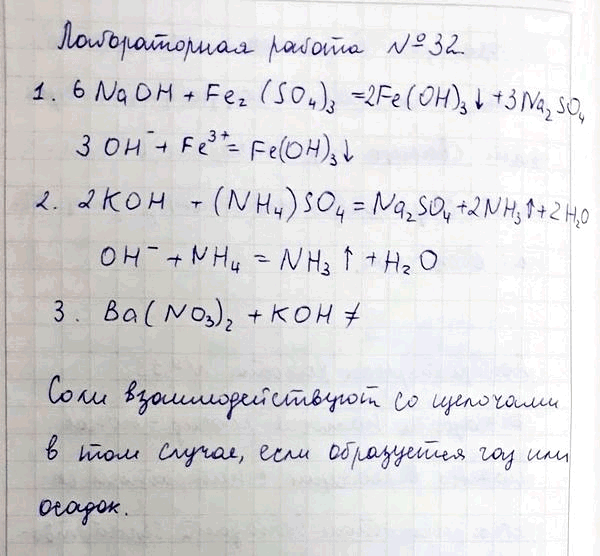 Лабораторная работа №32
1. 6NaOH + Fe₂(SO₄)₃ =2Fe(OH)₃↓ +3Na₂SO₄
3OH⁻ + Fe³⁺ = Fe(OH)₃↓
2. 2KOH + (NH₄)SO₄ = Na₂SO₄ +2NH₃↑ +2H₂O
OH⁻ + NH₄ = NH₃↑ + H₂O
3. Ba(NO₃)₂ + KOH ≠
Соли взаимодействуют со щелочами
в том случае, если образуется газ или
осадок.